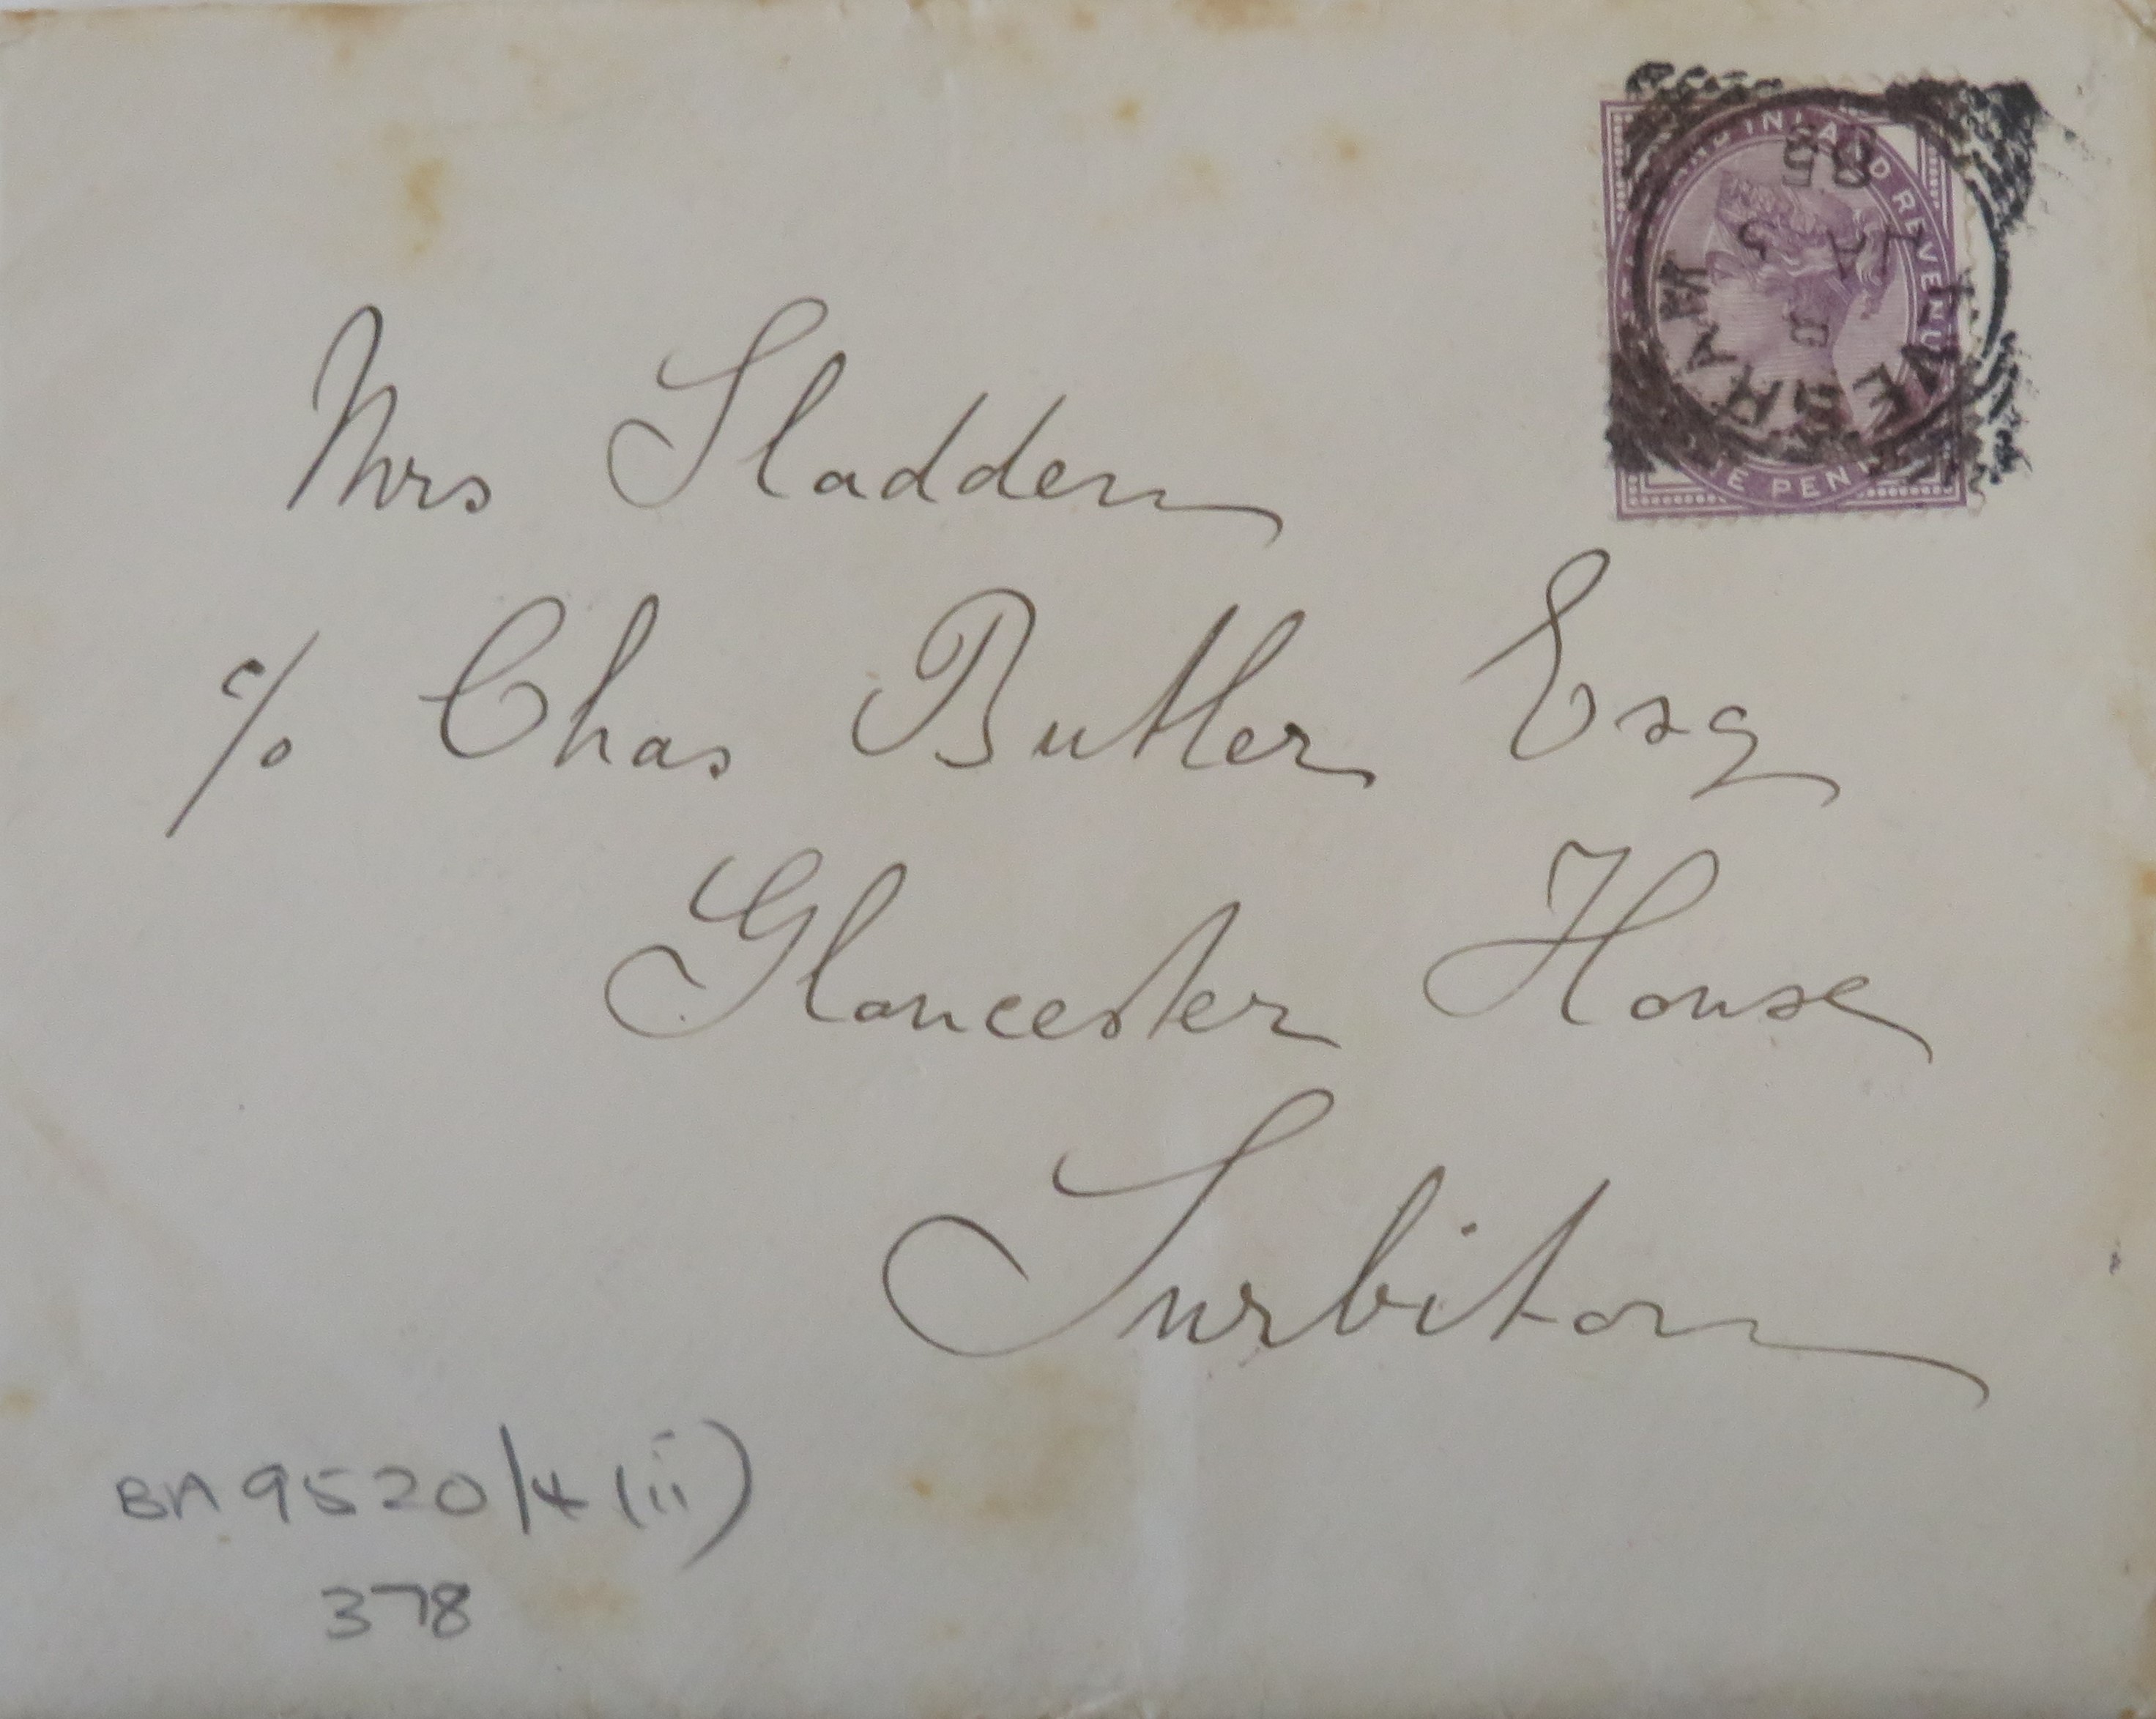 Mrs Sladden
c/o Chas Butler Esq
Gloucester House
Surbiton
INLAND REVENUE
PEN
EVESHAM
BA 9520/4 (ii)
378